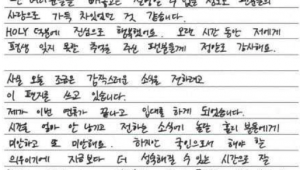 사랑으로 가득 차있었던 것 같습니다.
HOLY 덕분에 진심으로 행복했어요. 오랜 시간 동안 저에게
평생 잊지 못할 추억을 주신 팬분들께 정말로 감사해요.
사실 오늘 조금은 갑작스러운 소식을 전하려고
이 편지를 쓰고 있습니다.
제가 이번 연도가 끝나고 입대를 하게 되었습니다.
시간을 얼마 안 남기고 전하는 소식에 놀랄 홀리 분들에게
미안하고 또 미안해요. 하지만 국민으로서 해야 하는
의무이기에 지금보다 더 성숙해질 수 있는 시간으로 잘